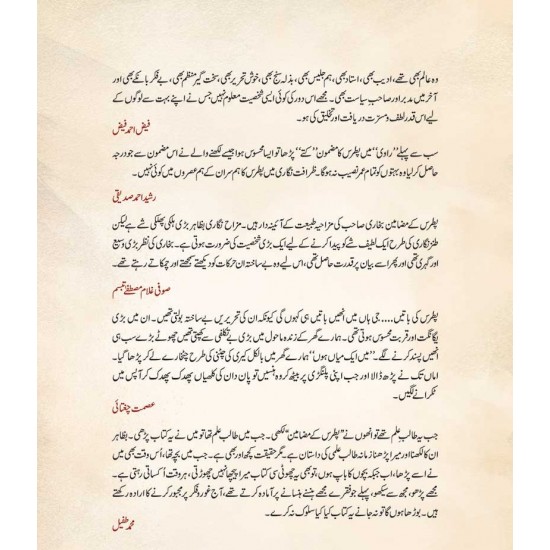 وہ عالم بھی تھے، ادیب بھی، استاد بھی، ہم جلیس بھی، بذلہ سنج بھی، خوش تحریر بھی، سخت گیر منظم بھی، بے فکر بانکے بھی اور
آخر میں مدبر اور صاحب سیاست بھی۔ مجھے اس دور کی کوئی ایسی شخصیت معلوم نہیں جس نے اپنے بہت سے لوگوں کے
لیے اس قدر لطف و مسرت دریافت اور تخلیق کی ہو۔
فیض احمد فیض
سب سے پہلے ’’راوی‘‘ میں پطرس کا مضمون ’’کتے‘‘ پڑھا تو ایسا محسوس ہوا جیسے لکھنے والے نے اس مضمون سے جو درجہ
حاصل کر لیا وہ بہتوں کو تمام عمر نصیب نہ ہو گا۔ ظرافت نگاری میں پطرس کا ہم سر ان کے ہم عصروں میں کوئی نہیں۔
رشید احمد صدیقی
پطرس کے مضامین بخاری صاحب کی مزاحیہ طبیعت کے آئینہ دار ہیں۔ مزاح نگاری بظاہر بڑی ہلکی پھلکی شے ہے لیکن
طنز نگاری کی طرح ایک لطیف شے کو پیدا کرنے کے لیے ایک بڑی شخصیت کی ضرورت ہوتی ہے۔ بخاری کی نظر بڑی وسیع
اور گہری تھی اور پھر اسے بیان پر قدرت حاصل تھی، اس لیے وہ بے ساختہ ان حرکات کو دیکھتے سمجھتے اور چمکاتے رہتے تھے۔
صوفی غلام مصطفےٰ تبسم
پطرس کی باتیں.... جی ہاں میں انھیں باتیں ہی کہوں گی کیونکہ ان کی تحریریں بے ساختہ بولتی تھیں۔ ان میں بڑی
یگانگت اور قربت محسوس ہوتی تھی۔ ہمارے گھر کے زندہ ماحول میں بڑی بے تکلفی سے کھپتی تھیں چھوٹے بڑے سب ہی
انھیں پسند کرنے لگے۔ ’’میں ایک میاں ہوں‘‘ ہمارے گھر میں بالکل کیری کی چٹنی کی طرح چٹخارے لے کر پڑھا گیا۔
اماں تک نے پڑھ ڈالا اور جب اپنی پلنگڑی پر بیٹھ کر وہ ہنسیں تو پان دان کی کلھیاں پھدک پھدک کر آپس میں
ٹکرانے لگیں۔
عصمت چغتائی
جب یہ طالب علم تھے تو انھوں نے ’’پطرس کے مضامین‘‘ لکھی۔ جب میں طالب علم تھا تو میں نے یہ کتاب پڑھی۔ بظاہر
ان کا لکھنا اور میرا پڑھنا زمانہ طالب علمی کی داستان ہے۔ مگر حقیقت کچھ اور بھی ہے۔ جب میں بچہ تھا، اُس وقت بھی میں
نے اسے پڑھا، اب جبکہ بچوں کا باپ ہوں، تو بھی یہ چھوٹی سی کتاب میرا پیچھا نہیں چھوڑتی، ہر وقت اُکساتی رہتی ہے۔
مجھے پڑھو، مجھ سے سیکھو، پہلے جو فقرے مجھے ہنسنے ہنسانے پر آمادہ کرتے تھے، آج غور و فکر پر مجبور کرنے کا ارادہ رکھتے
ہیں۔ بوڑھا ہوں گا تو نہ جانے یہ کتاب کیا کیا سلوک نہ کرے۔
محمد طفیل